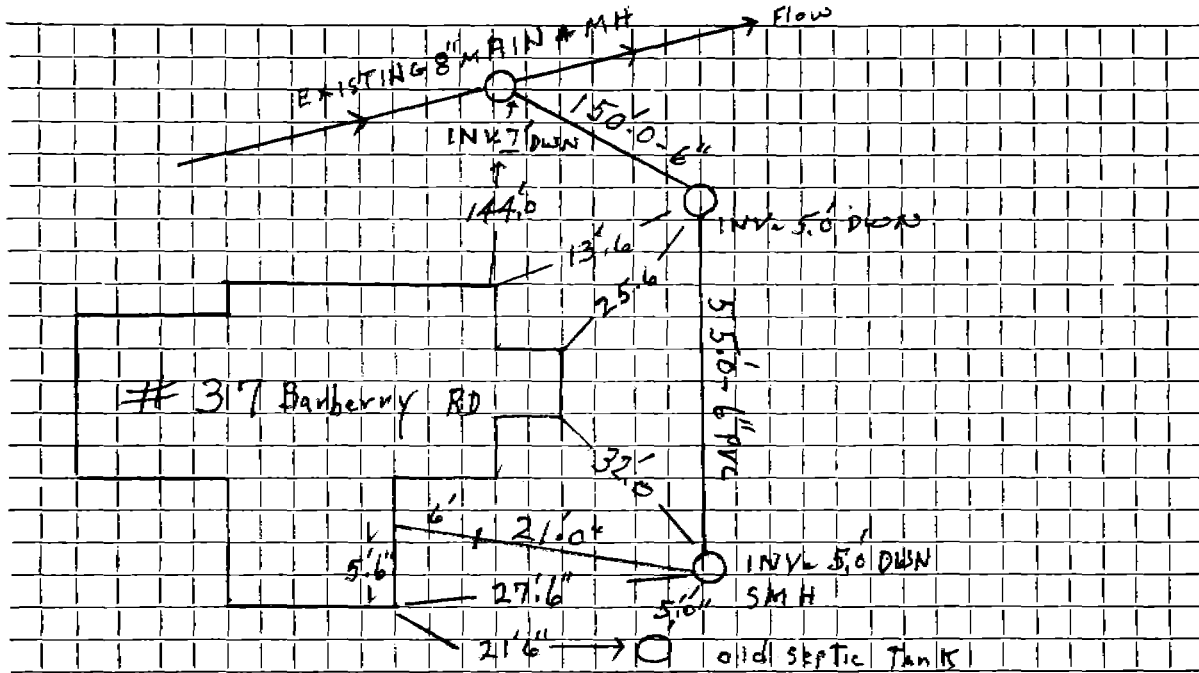 Flow
EXISTING 8" MAIN + MH
INV. 7' DWN
150'.0 - 6"
144'.0
INV- 5.0' DWN
13'.6
25'.6
55'.0 - 6" PVC
# 317 Banberry RD
32'.0
6'
21'.0"
5'.6"
INV- 5.0' DWN
SMH
27'.6"
5'.0"
21'6"
old septic Tank